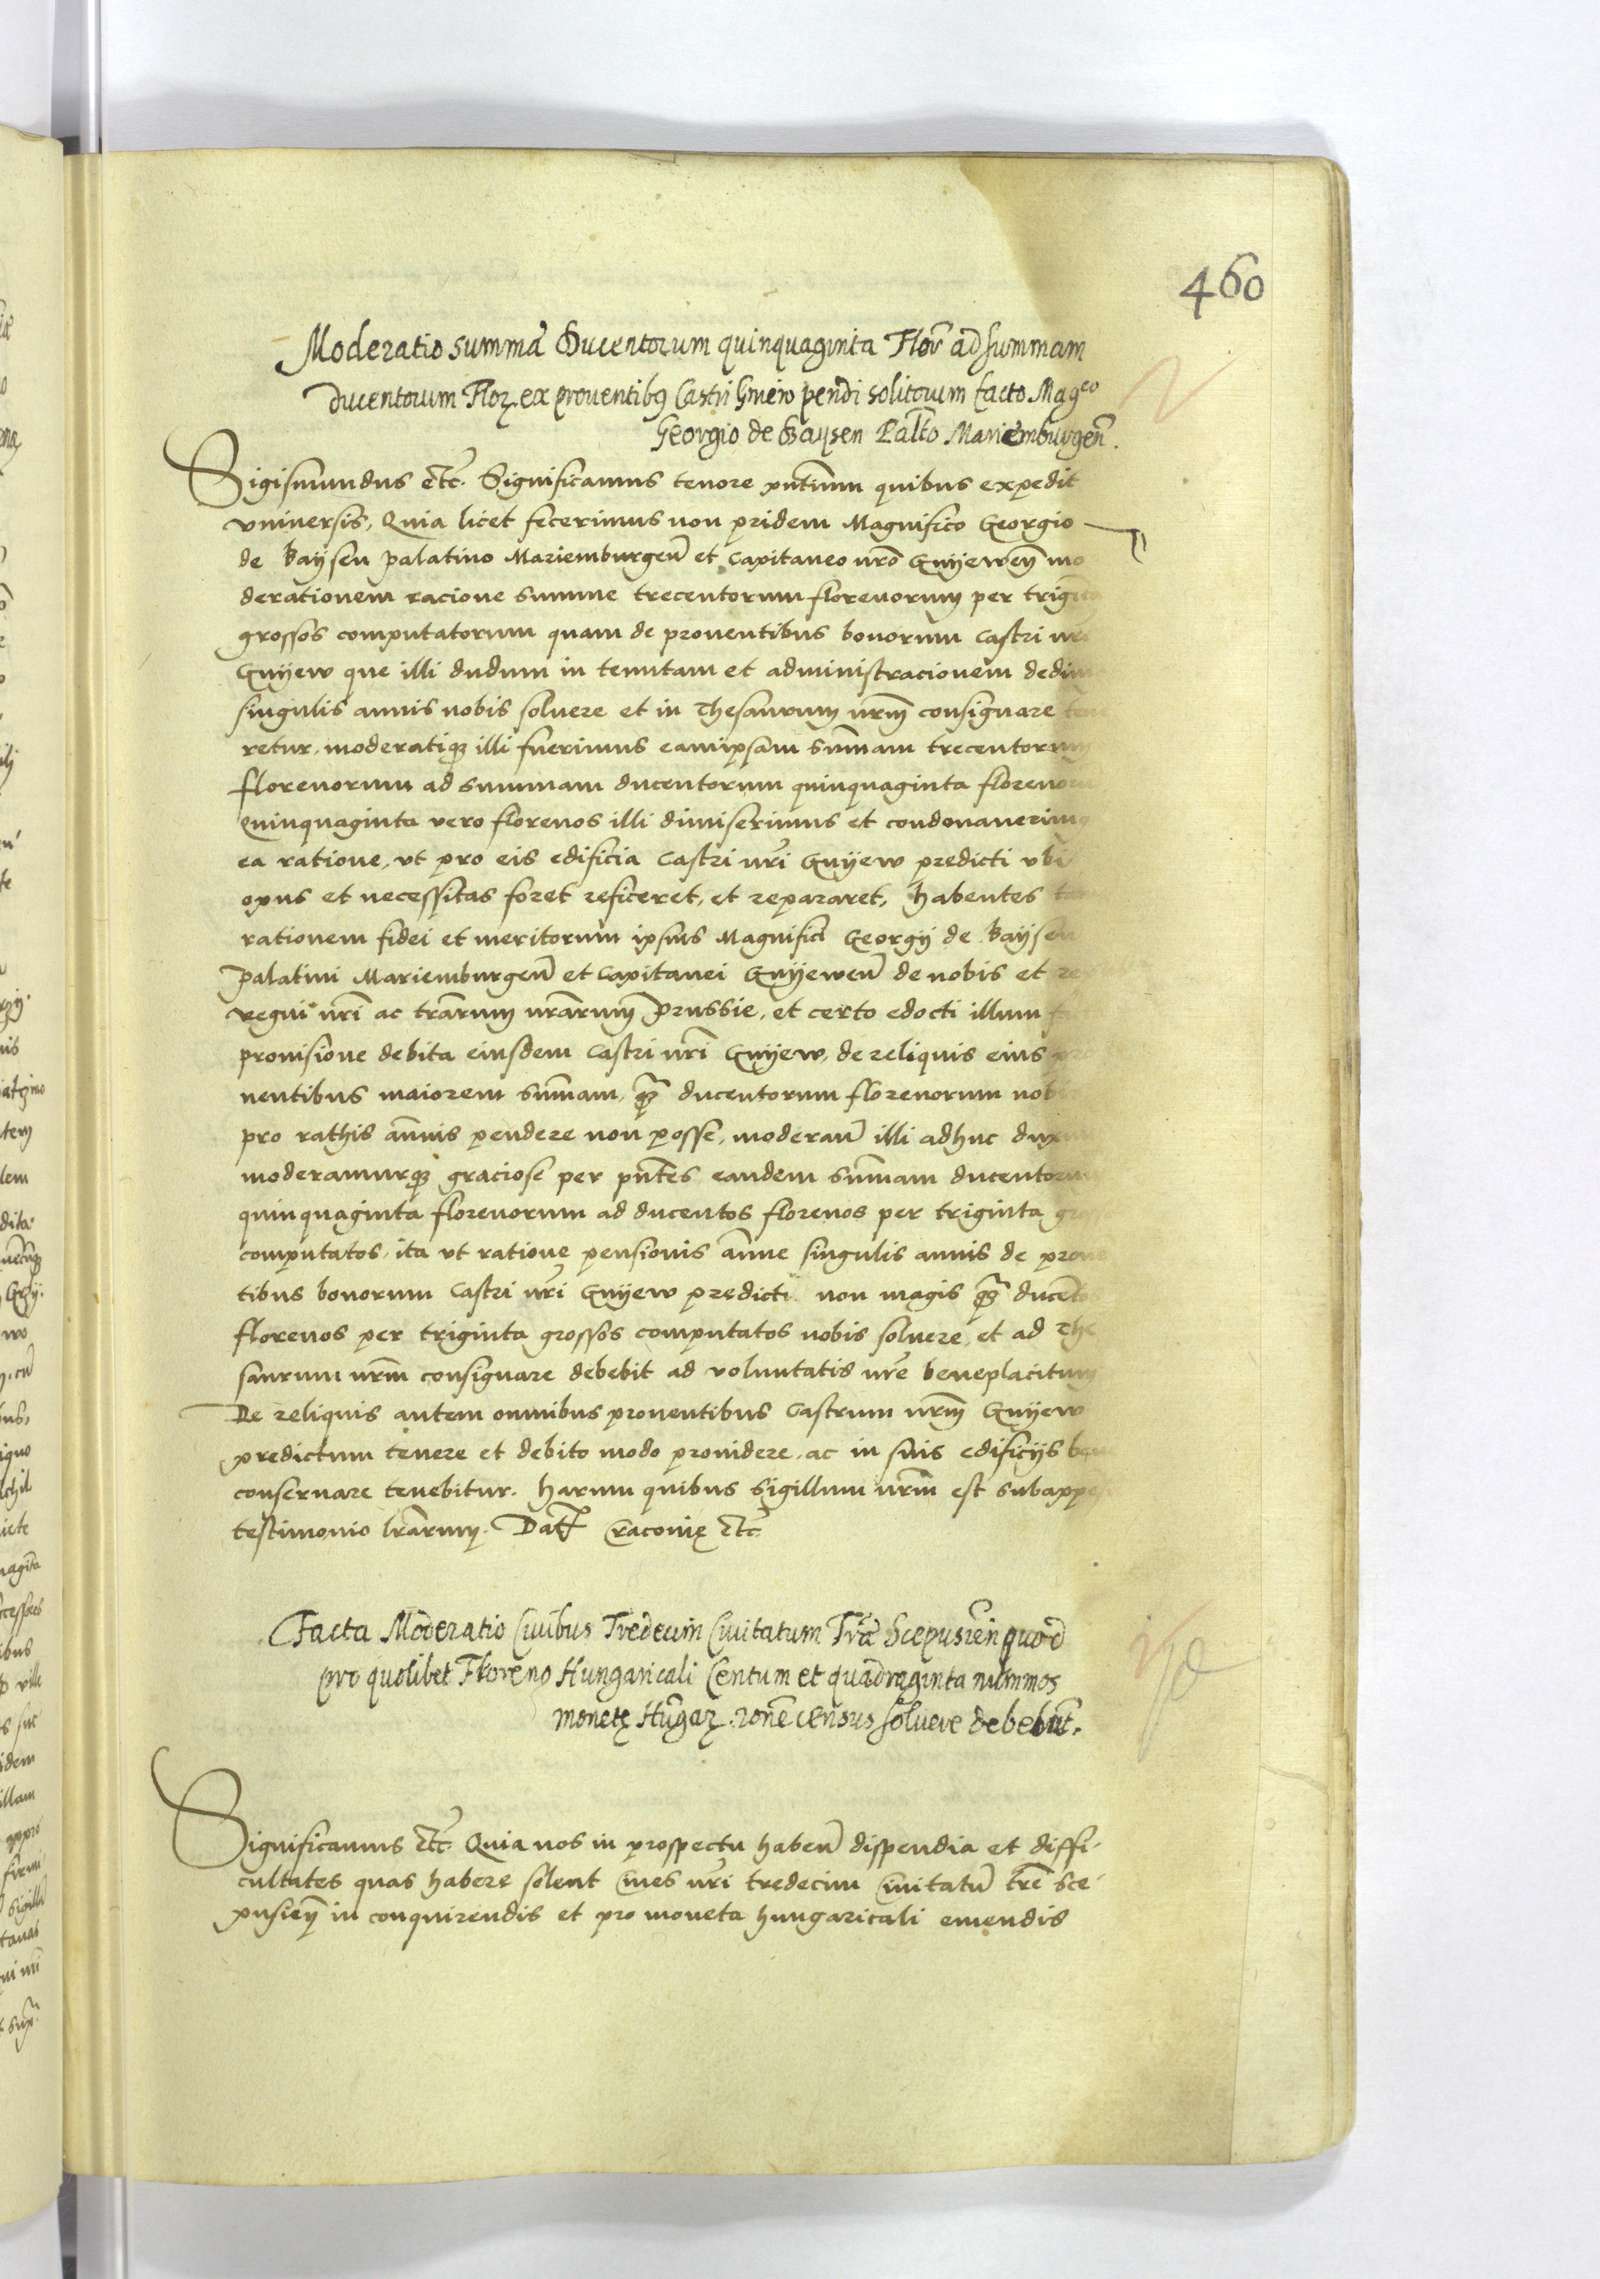 460
Moderatio summe Ducentorum quinquaginta Flor ad summam
ducentorum Flor ex proventibus Castri Gniew pendi solitorum facto Magco
Georgio de Baysen Palto Mariemburgen.
Sigismundus etc. Significamus tenore pntium quibus expedit
vniuersis, Quia licet fecerimus non pridem Magnifico Georgio
de Baysen palatino Mariemburgen et Capitaneo nro Gnyewen mo
derationem racione summe trecentorum florenorum per triginta
grossos computatorum quam de prouentibus bonorum Castri nri
Gnyew que illi dudum in tenutam et administracionem dedimus
singulis annis nobis soluere et in Thesaurum nrm consignare tene
retur, moderatiq illi fuerimus eamipsam sumam trecentorum
florenorum ad summam ducentorum quinquaginta florenorum
quinquaginta vero florenos illi dimiserimus et condonauerimus
ea ratione, vt pro eis edificia Castri nri Gnyew predicti vbi
opus et necessitas foret reficeret, et repararet, habentes
rationem fidei et meritorum ipsius Magnifici Georgij de Baysen
palatini Mariemburgen et Capitanei Gnyewen de nobis et
regni nri ac trarum nrarum Prussie, et certo edocti illum
prouisione debita eiusdem Castri nri Gnyew, de reliquis eius pro
uentibus maiorem sumam, q ducentorum florenorum nobis
pro rathis annuis pendere non posse, moderan illi adhuc duximus
moderamurq graciose per pntes eandem sumam ducentorum
quinquaginta florenorum ad ducentos florenos per triginta grossos
computatos, ita vt ratione pensionis annue singulis annis de prouen
tibus bonorum Castri nri Gnyew predicti non magis q ducentos
florenos per triginta grossos computatos nobis soluere, et ad The
saurum nrm consignare debebit ad voluntatis nre beneplacitum
De reliquis autem omnibus prouentibus Castrum nrm Gnyew
predictum tenere et debito modo prouidere, ac in suis edificijs bene
conseruare tenebitur. Harum quibus Sigillum nrm est subappen
testimonio lrarum. Dat Cracouie etc
Facta Moderatio Ciuibus Tredecim Ciuitatum Tre Scepusien quod
pro quolibet Floreno Hungaricali Centum et quadraginta nummos
monete Hungar rone census soluere debebut.
Significamus etc Quia nos in prospectu haben dispendia et diffi-
cultates quas habere solent ciues nri tredecim ciuitatu tre Sce-
pusien in conquirendis et pro moneta hungaricali emendis